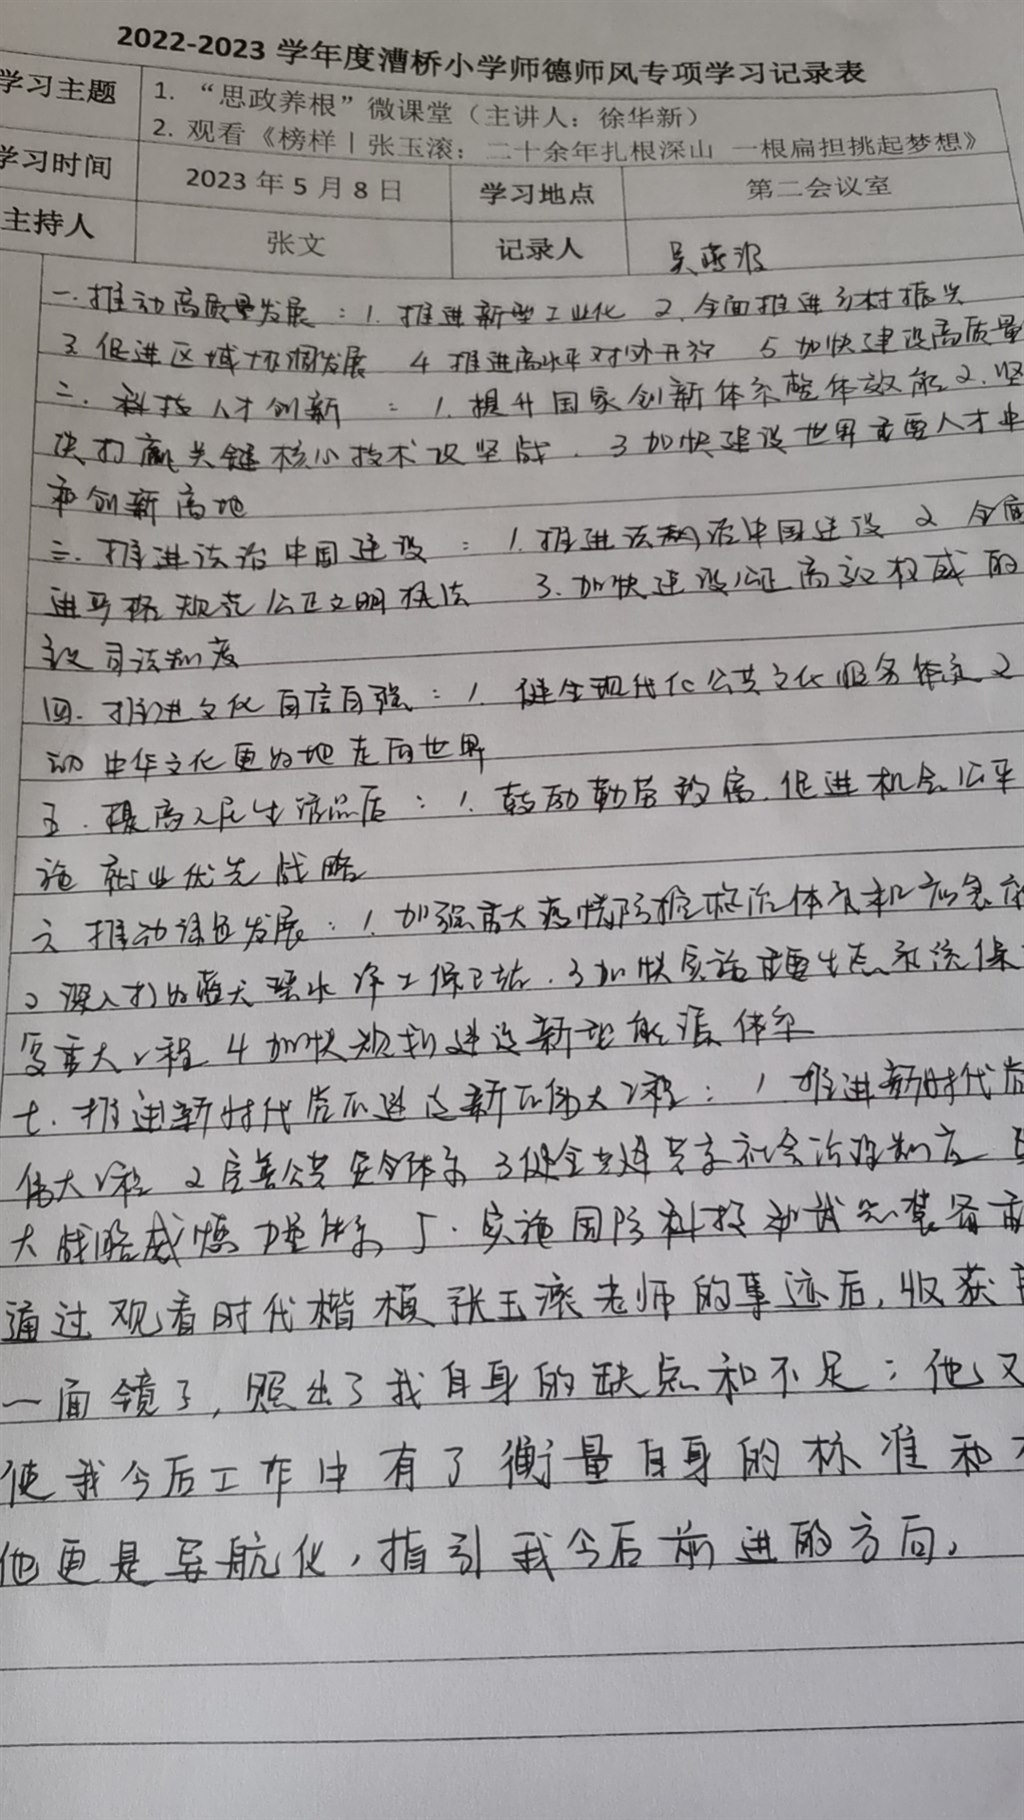 2022-2023 学年度漕桥小学师德师风专项学习记录表
学习主题
1. “思政养根”微课堂（主讲人：徐华新）
2. 观看《榜样 | 张玉滚：二十余年扎根深山 一根扁担挑起梦想》
学习时间 2023 年 5 月 8 日 学习地点 第二会议室
主持人 张文 记录人 吴
一.推动高质量发展：1. 推进新型工业化 2. 全面推进乡村振兴
3 促进区域协调发展 4 推进高水平对外开放 5 加快建设高质量
二. 科技人才创新：1. 提升国家创新体系整体效能 2. 坚
决打赢关键核心技术攻坚战. 3 加快建设世界重要人才中
和创新高地
三. 推进法治中国建设：1. 推进法治中国建设 2 全面
进严格规范公正文明执法 3. 加快建设公正高效权威的
司法制度
四. 推进文化自信自强：1. 健全现代化公共文化服务体系 2
动中华文化更好地走向世界
五. 提高人民生活品质：1. 鼓励勤劳致富. 促进机会公平
施就业优先战略
六 推动绿色发展：1. 加强重大疫情防控救治体系和应急
2 深入打好蓝天碧水净土保卫战. 3 加快实施重要生态系统保
复重大工程 4 加快规划建设新型能源体系
七. 推进新时代党的建设新的伟大工程：1 推进新时代党
伟大工程 2 完善公共安全体系 3 健全共建共享社会治理制度
大战略威慑力量体系 5. 实施国防科技和武器装备重
通过观看时代楷模张玉滚老师的事迹后，收获
一面镜子，照出了我自身的缺点和不足；他又
使我今后工作中有了衡量自身的标准和
他更是导航仪，指引我今后前进的方向。